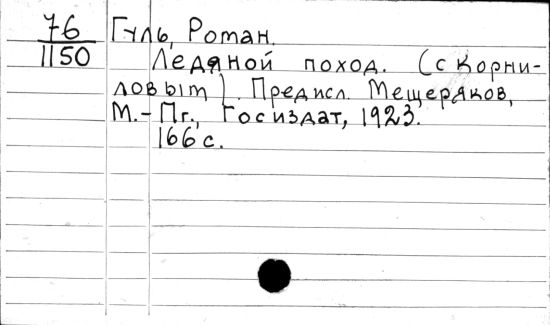 76 Гуль, Роман.
1150 Ледяной поход. (с Корни-
ловым). Предисл. Мещеряков,
М.-Пг., Госиздат, 1923.
166 с.